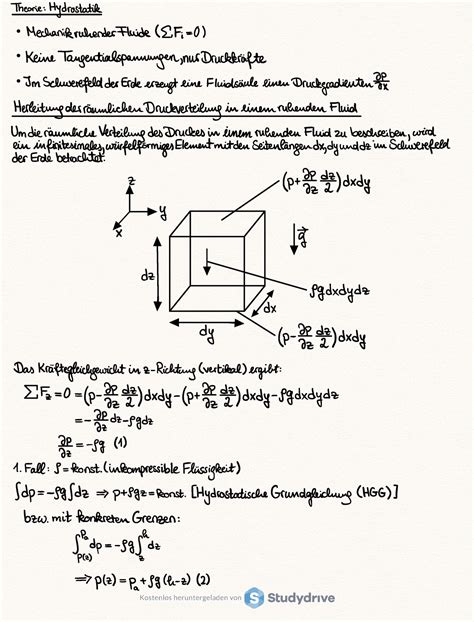 Theorie: Hydrostatik
• Mechanik ruhender Fluide (∑Fᵢ=0)
• Keine Tangentialspannungen, nur Druckkräfte
• Im Schwerefeld der Erde erzeugt eine Fluidsäule einen Druckgradienten ∂p/∂x
Herleitung der räumlichen Druckverteilung in einem ruhenden Fluid
Um die räumliche Verteilung des Druckes in einem ruhenden Fluid zu beschreiben, wird
ein infinitesimales, würfelförmiges Element mit den Seitenlängen dx, dy und dz im Schwerefeld
der Erde betrachtet.
(p+∂p/∂z dz/2)dxdy
z
y
x
g⃗
dz
ρgdxdydz
dx
dy
(p-∂p/∂z dz/2)dxdy
Das Kräftegleichgewicht in z-Richtung (vertikal) ergibt:
∑F_z=0=(p-∂p/∂z dz/2)dxdy-(p+∂p/∂z dz/2)dxdy-ρgdxdydz
=-∂p/∂z dz-ρgdz
∂p/∂z=-ρg (1)
1. Fall: ρ=konst. (inkompressible Flüssigkeit)
∫dp=-ρg∫dz ⇒ p+ρgz=konst. [Hydrostatische Grundgleichung (HGG)]
bzw. mit konkreten Grenzen:
∫_{p(z)}^{pₐ} dp=-ρg∫_z^h dz
⇒p(z)=pₐ+ρg(h-z) (2)
Kostenlos heruntergeladen von S Studydrive